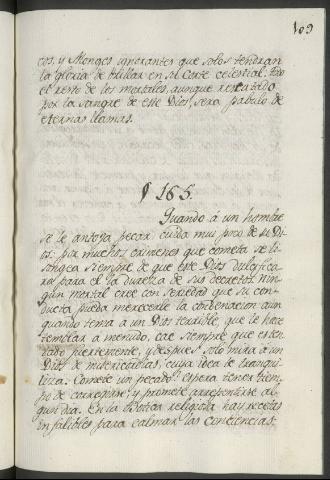 109
cos, y Monges ignorantes que solos tendran
la gloria de brillar en su Corte celestial. Todo
el resto de los mortales, aunque rescatado
por la sangre de este Dios, sera pabulo de
eternas llamas.
§ 165.
Quando á un hombre
se le antoja pecar cuida mui poco de su Di-
os: por muchos crimenes que cometa se li-
songea siempre de que este Dios dulcifica-
ra para el la dureza de sus decretos. Nin-
gun mortal cree con seriedad que su con-
ducta pueda merecerle la condenacion: aun
quando tema á un Dios terrible, que le hace
temblar á menudo, cae siempre que es ten-
tado fuertemente, y despues solo mira á un
Dios de misericordias, cuya idea le tranqui-
liza. Comete un pecado? espera tener tiem-
po de corregirse, y promete arrepentirse al-
gun dia. En la botica religiosa hay recetas
infalibles para calmar las conciencias.